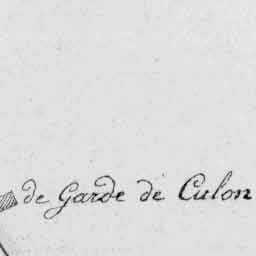 de Garde de Culon